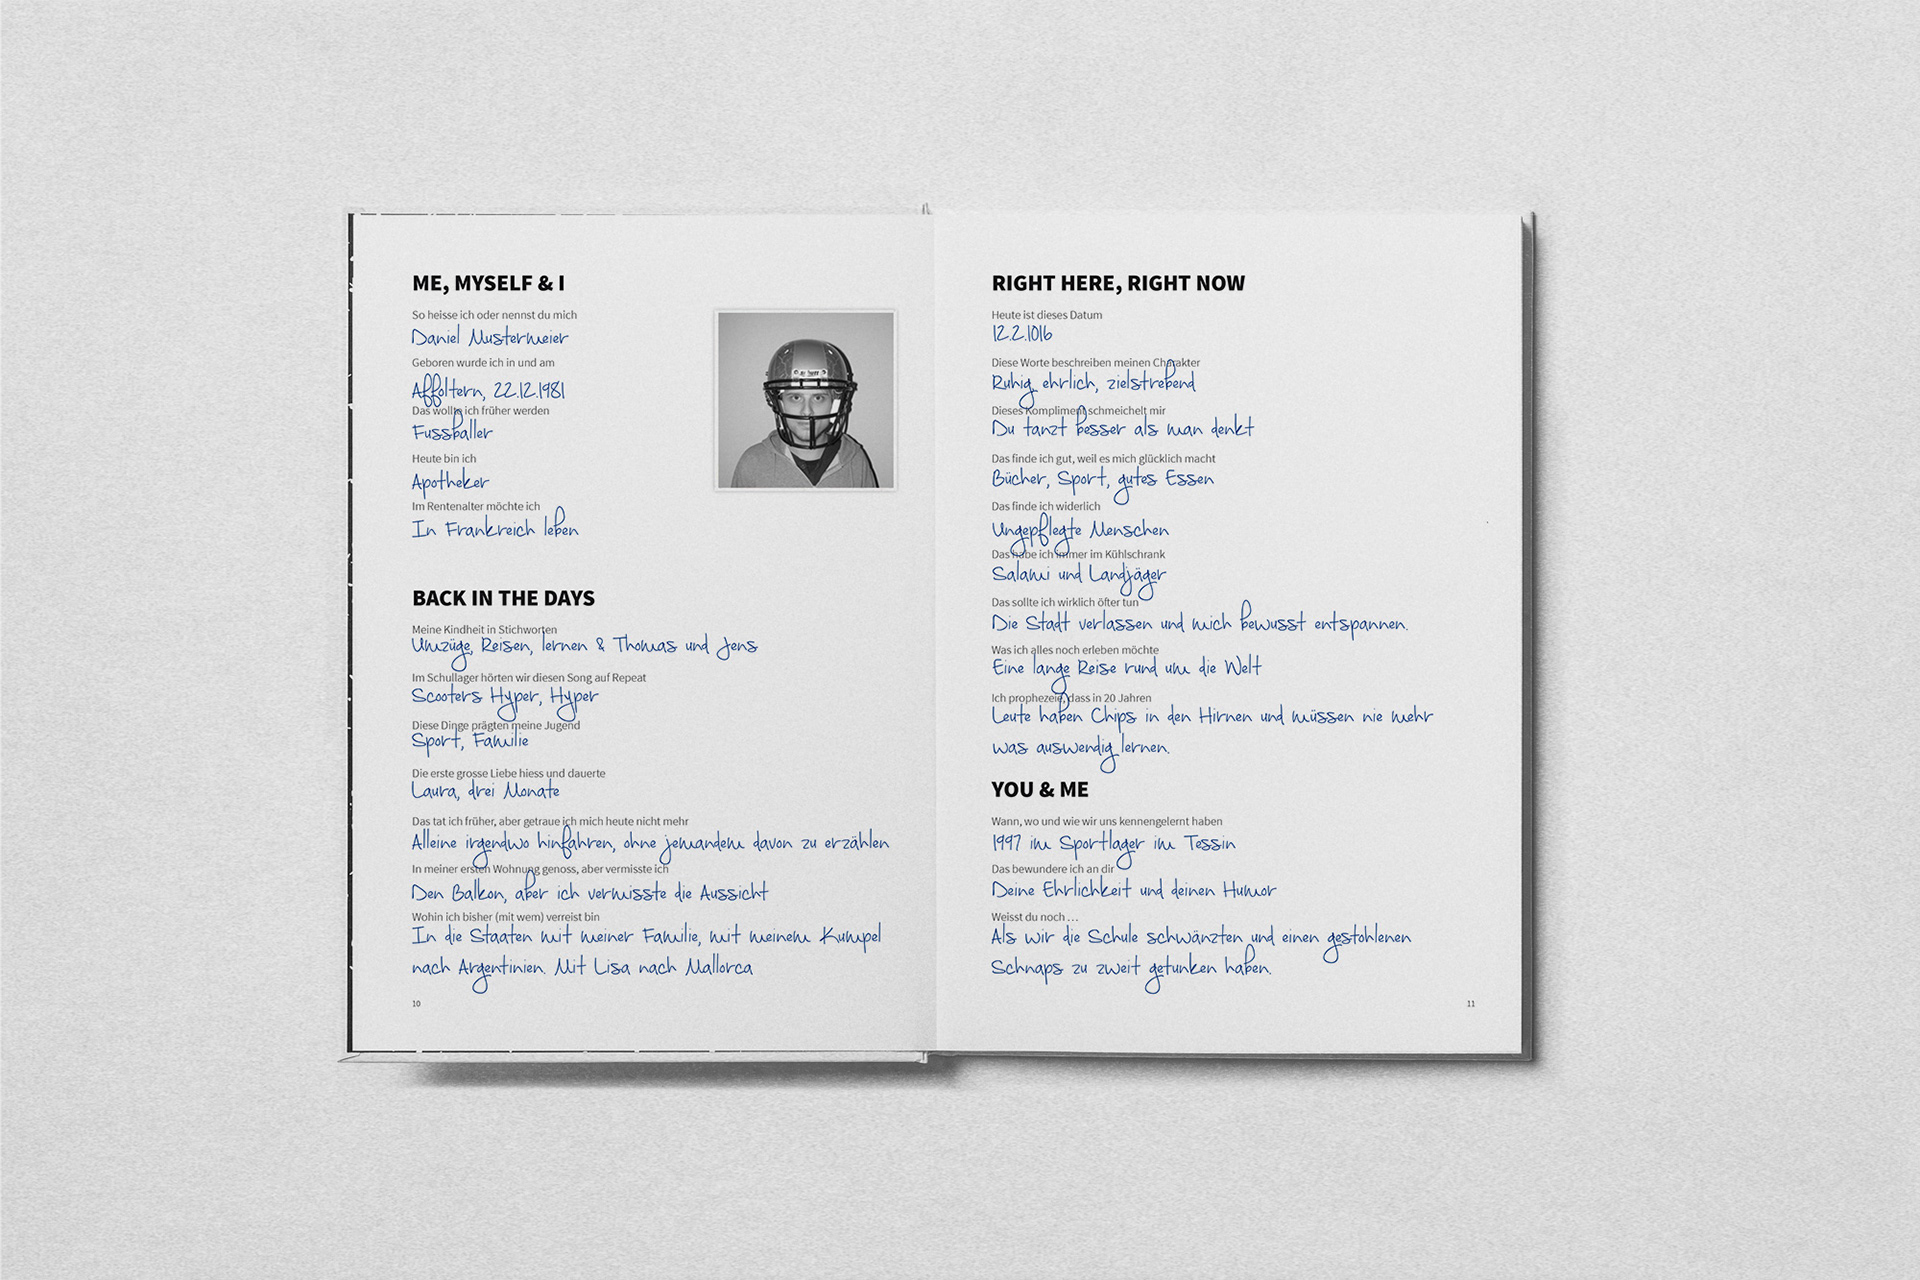 ME, MYSELF & I
So heisse ich oder nennst du mich
Daniel Mustermeier
Geboren wurde ich in und am
Affoltern, 22.12.1981
Das wollte ich früher werden
Fussballer
Heute bin ich
Apotheker
Im Rentenalter möchte ich
In Frankreich leben
BACK IN THE DAYS
Meine Kindheit in Stichworten
Umzüge, Reisen, lernen & Thomas und Jens
Im Schullager hörten wir diesen Song auf Repeat
Scooters Hyper, Hyper
Diese Dinge prägten meine Jugend
Sport, Familie
Die erste grosse Liebe hiess und dauerte
Laura, drei Monate
Das tat ich früher, aber getraue ich mich heute nicht mehr
Alleine irgendwo hinfahren, ohne jemandem davon zu erzählen
In meiner ersten Wohnung genoss, aber vermisste ich
Den Balkon, aber ich vermisste die Aussicht
Wohin ich bisher (mit wem) verreist bin
In die Staaten mit meiner Familie, mit meinem Kumpel
nach Argentinien. Mit Lisa nach Mallorca
10
RIGHT HERE, RIGHT NOW
Heute ist dieses Datum
12.2.1016
Diese Worte beschreiben meinen Charakter
Ruhig, ehrlich, zielstrebend
Dieses Kompliment schmeichelt mir
Du tanzt besser als man denkt
Das finde ich gut, weil es mich glücklich macht
Bücher, Sport, gutes Essen
Das finde ich widerlich
Ungepflegte Menschen
Das habe ich immer im Kühlschrank
Salami und Landjäger
Das sollte ich wirklich öfter tun
Die Stadt verlassen und mich bewusst entspannen.
Was ich alles noch erleben möchte
Eine lange Reise rund um die Welt
Ich prophezeie, dass in 20 Jahren
Leute haben Chips in den Hirnen und müssen nie mehr
was auswendig lernen.
YOU & ME
Wann, wo und wie wir uns kennengelernt haben
1997 im Sportlager im Tessin
Das bewundere ich an dir
Deine Ehrlichkeit und deinen Humor
Weisst du noch …
Als wir die Schule schwänzten und einen gestohlenen
Schnaps zu zweit getunken haben.
11